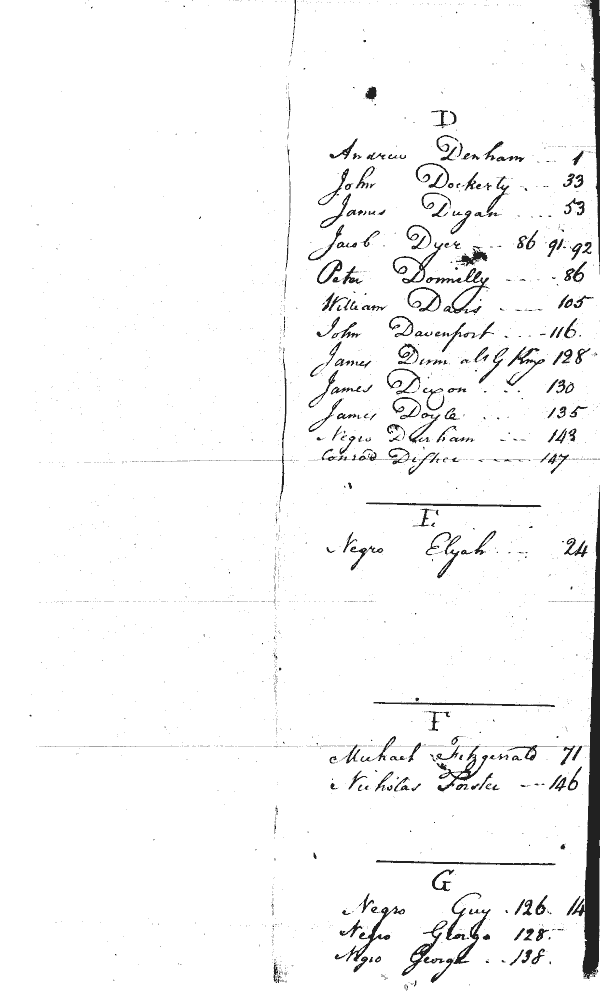 D
Andrew Denham 1
John Dockerty 33
James Dugan 53
Jacob Dyer 86 91. 92
Peter Donnilly 86
William Davis 105
John Davenport 116.
James Dunn als G King 128
James Dixon 130
James Doyle 135
Negro Durham 143
Conrad Disher 147
E
Negro Elijah 24
F
Michael Fitzgerrald 71
Nicholas Forster 146
G
Negro Guy 126. 14
Negro George 128.
Negro George 138.